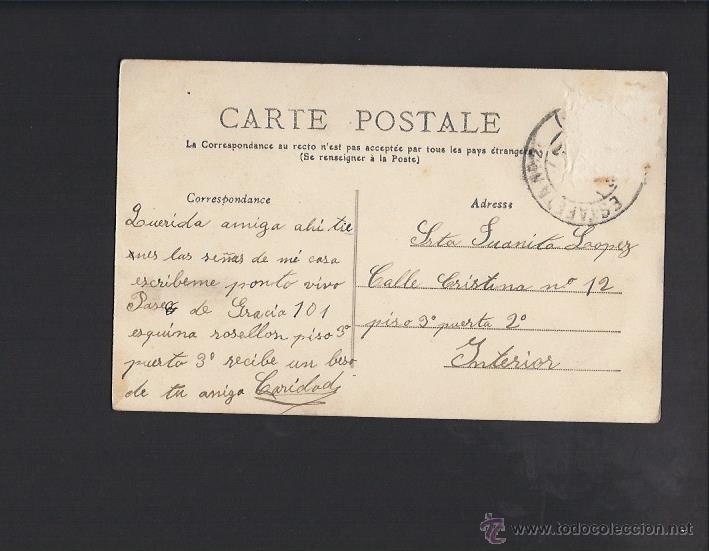 CARTE POSTALE
La Correspondance au recto n'est pas acceptée par tous les pays étrangers
(Se renseigner à la Poste)
Correspondance
Querida amiga ahi tie
nes las señas de mé casa
escribeme ponto vivo
Paseo de Gracia 101
esquina rosellon piso 3º
puerto 3º recibe un beso
de tu amiga Caridad
Adresse
Srta Juanita Loopez
Calle Cristina nº 12
piso 3º puerta 2º
Interior
ESTAFETA
todocoleccion
www.todocoleccion.net